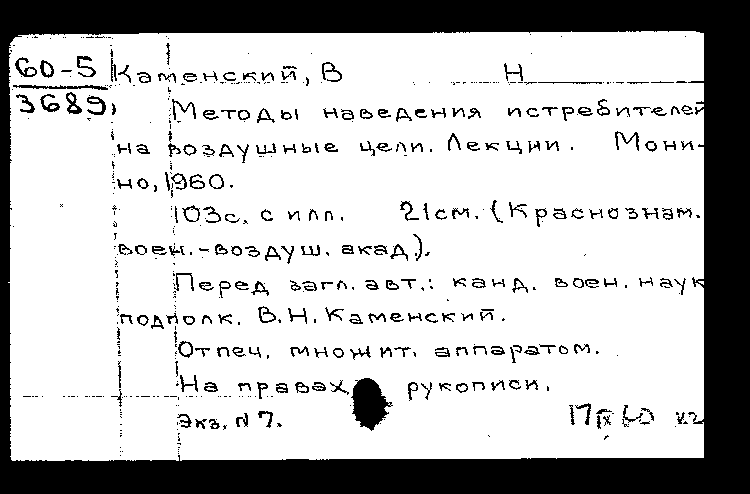 60-5 Каменский, В Н
3689,
Методы наведения истребителей
на воздушные цели. Лекции. Мони-
но, 1960.
103с. с илл. 21см. (Краснознам.
воен.-воздуш. акад.).
Перед загл. авт.: канд. воен. наук
подполк. В.Н. Каменский.
Отпеч. множит. аппаратом.
На правах рукописи.
Экз. N 7. 17 IX 60